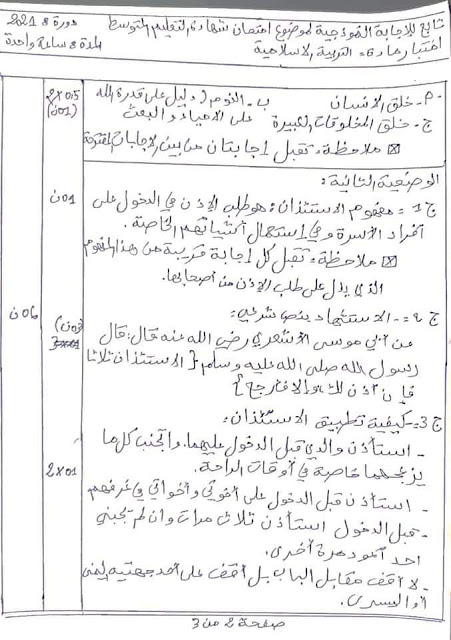 تابع للإجابة النموذجية لموضوع امتحان شهادة التعليم المتوسط دورة: 2021
اختبار مادة: التربية الإسلامية المدة: ساعة واحدة
أ- خلق الإنسان ب- النوم (دليل على قدرة الله 2x0.5
ج- خلق المخلوقات الكبيرة على الإحياء والبعث (01ن)
ملاحظة: تقبل إجابتان من بين الإجابات المقترحة
الوضعية الثانية:
ج1- مفهوم الاستئذان: هو طلب الإذن في الدخول على 01ن
أفراد الأسرة وفي استعمال أشيائهم الخاصة.
ملاحظة: تقبل كل إجابة قريبة من هذا المفهوم
الذي يدل على طلب الإذن من أصحابها.
06ن
ج2- الاستشهاد بنص شرعي: (03ن)
عن أبي موسى الأشعري رضي الله عنه قال: قال 3x01
رسول الله صلى الله عليه وسلم {الاستئذان ثلاثا
فإن أذن لك وإلا فارجع}
ج3- كيفية تطبيق الاستئذان:
- استأذن والدي قبل الدخول عليهما. وأتجنب كل ما
يزعجهما خاصة في أوقات الراحة. 2x01
- استأذن قبل الدخول على أخوتي وأخواتي في غرفهم
- قبل الدخول استأذن ثلاث مرات وإن لم يجبني
احد أعود مرة أخرى.
- لا أقف مقابل الباب بل أقف على أحد جهتيه اليمنى
أو اليسرى.
صفحة 2 من 3